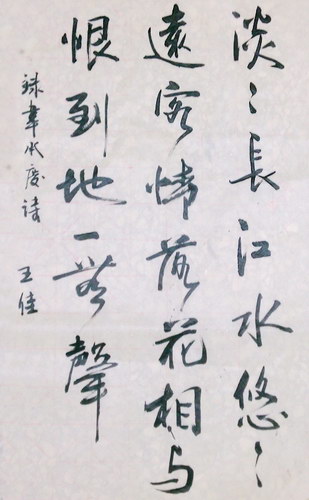 淡〻長江水悠〻
遠客情落花相与
恨到地一無聲
録韋承慶詩
王佳